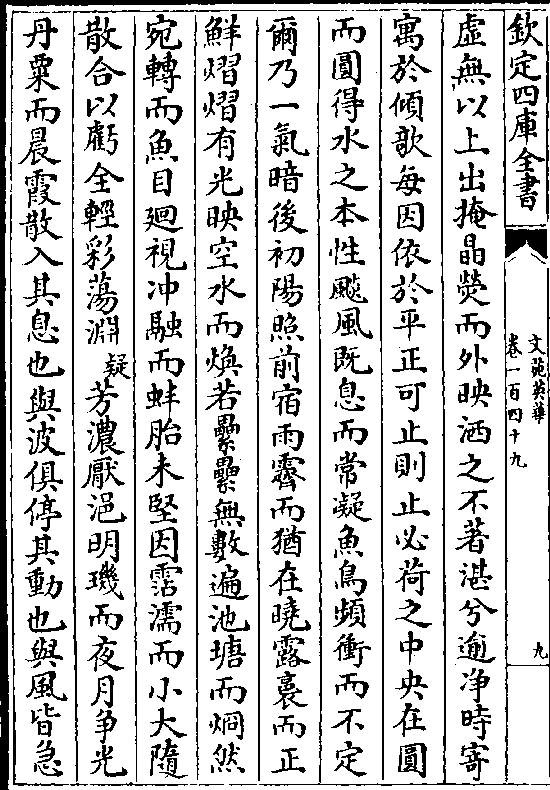 欽定四庫全書
文苑英華
卷一百四十九
九
虛無以上出掩晶熒而外映洒之不著湛兮逾净時寄
寓於傾欹每因依於平正可止則止必荷之中央在圓
而圓得水之本性飈風既息而常凝魚鳥頻衝而不定
爾乃一氣暗後初陽照前宿雨霽而猶在曉露裛而正
鮮熠熠有光映空水而煥若纍纍無數遍池塘而烱然
宛轉而魚目迴視冲融而蚌胎未堅因霑濡而小大隨
散合以虧全輕彩蕩淵疑芳濃厭浥明璣而夜月争光
丹粟而晨霞散入其息也與波俱停其動也與風皆急